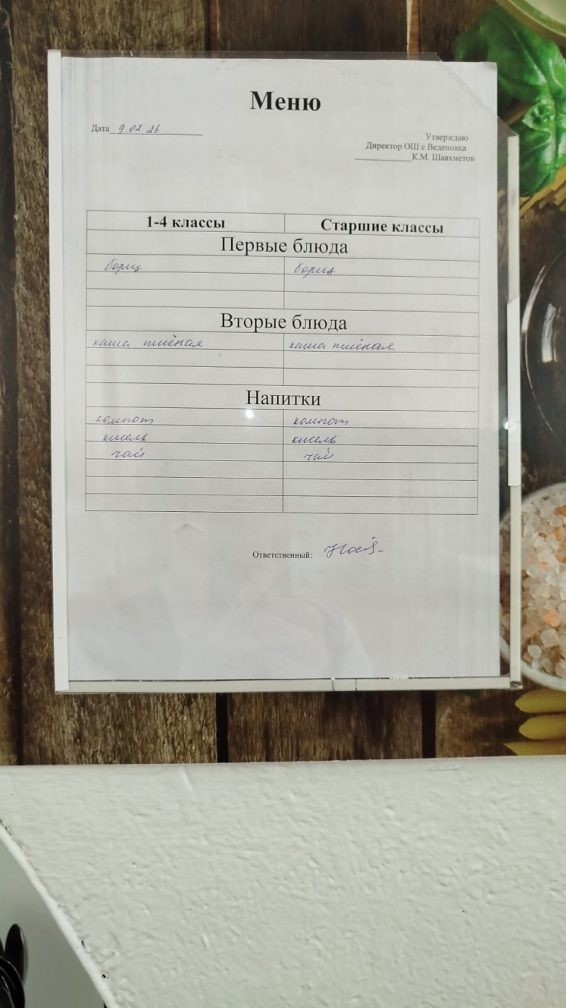 Меню
Дата 9.02.26
Утверждаю
Директор ОШ с Веденовка
К.М. Шаяхметов
1-4 классы Старшие классы
Первые блюда
борщ борщ
Вторые блюда
каша пшёная каша пшёная
Напитки
компот компот
кисель кисель
чай чай
Ответственный: